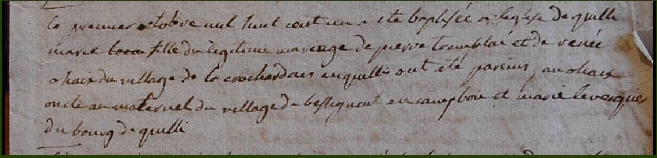 le premier octobre mil huit cent un a été baptisée en l'eglise de quilli
marie fille du legitime mariage de pierre tremblai et de renée
ohaix du village de la crochardais en quilli ont été pareins an ohaix
oncle au maternel du village de en campbon et marie levesques
du bourg de quilli